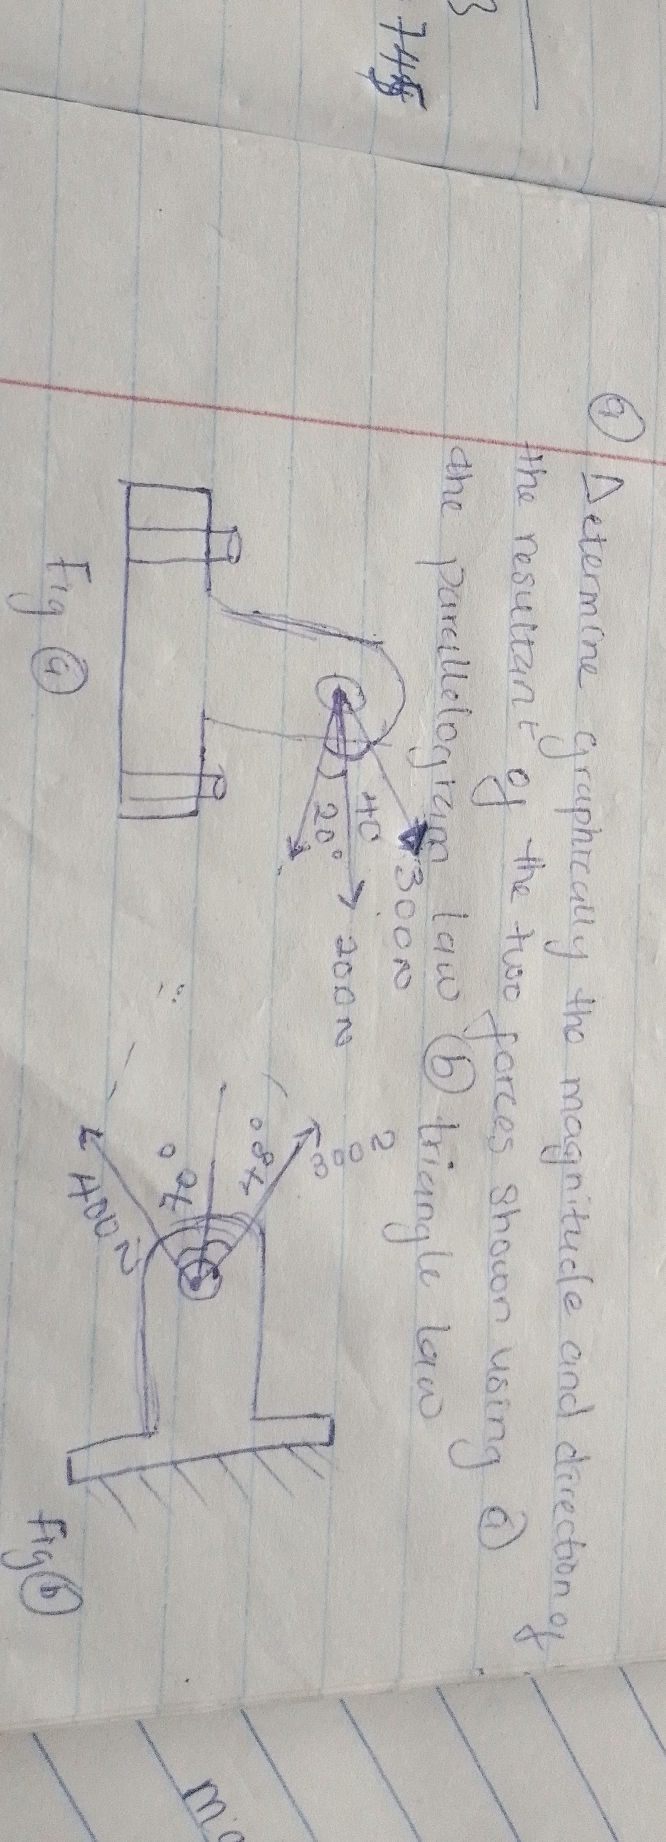 3
745
a Determine graphically the magnitude and direction of
the resultant of the two forces shown using a
the parallelogram law b triangle law
300N
40
200N
20°
Fig a
200
48°
76°
400N
Fig b